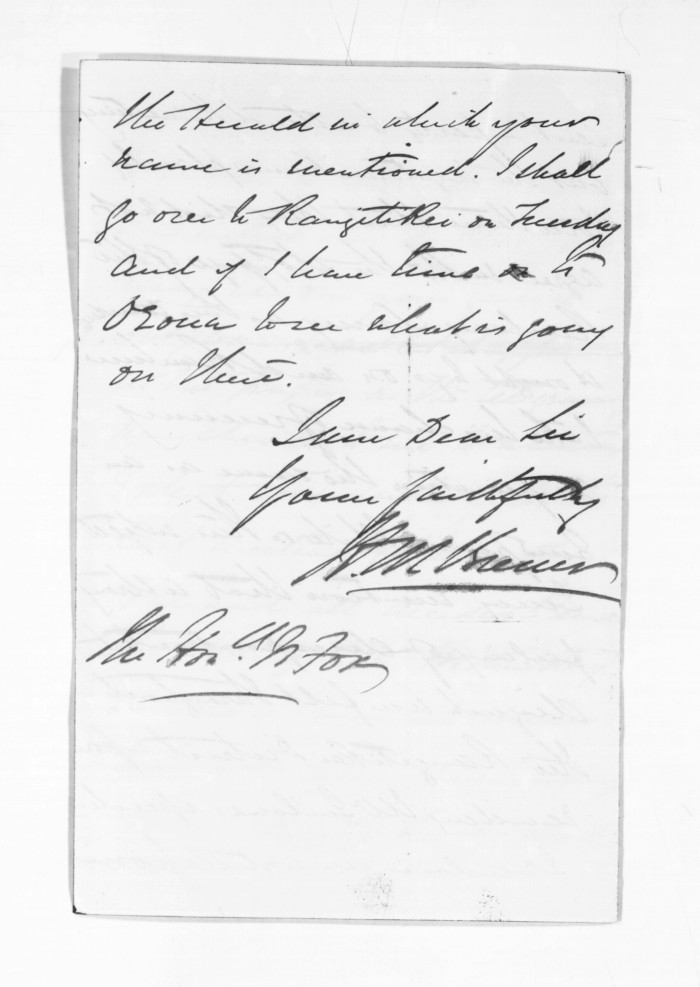 the Herald in which your
name is mentioned. I shall
go over to Rangitikei on Tuesday
and if I have time to
Oroua to see what is going
on there.
I am Dear Sir
Yours faithfully
The Honbl W Fox